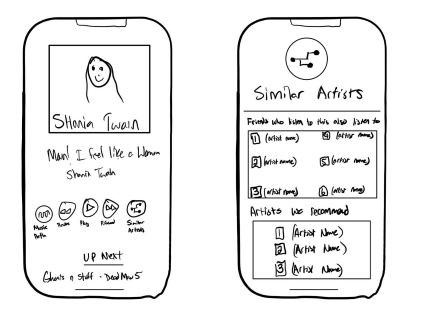 Shania Twain
Man! I feel like a Woman
Shania Twain
Music Path
Play
Similar Artists
UP Next
Ghosts n Stuff - DeadMau5
Similar Artists
Friends who listen to this also listen to
1 (artist name)
4 (artist name)
2 (artist name)
5 (artist name)
3 (artist name)
6 (artist name)
Artists we recommend
1 (Artist Name)
2 (Artist Name)
3 (Artist Name)